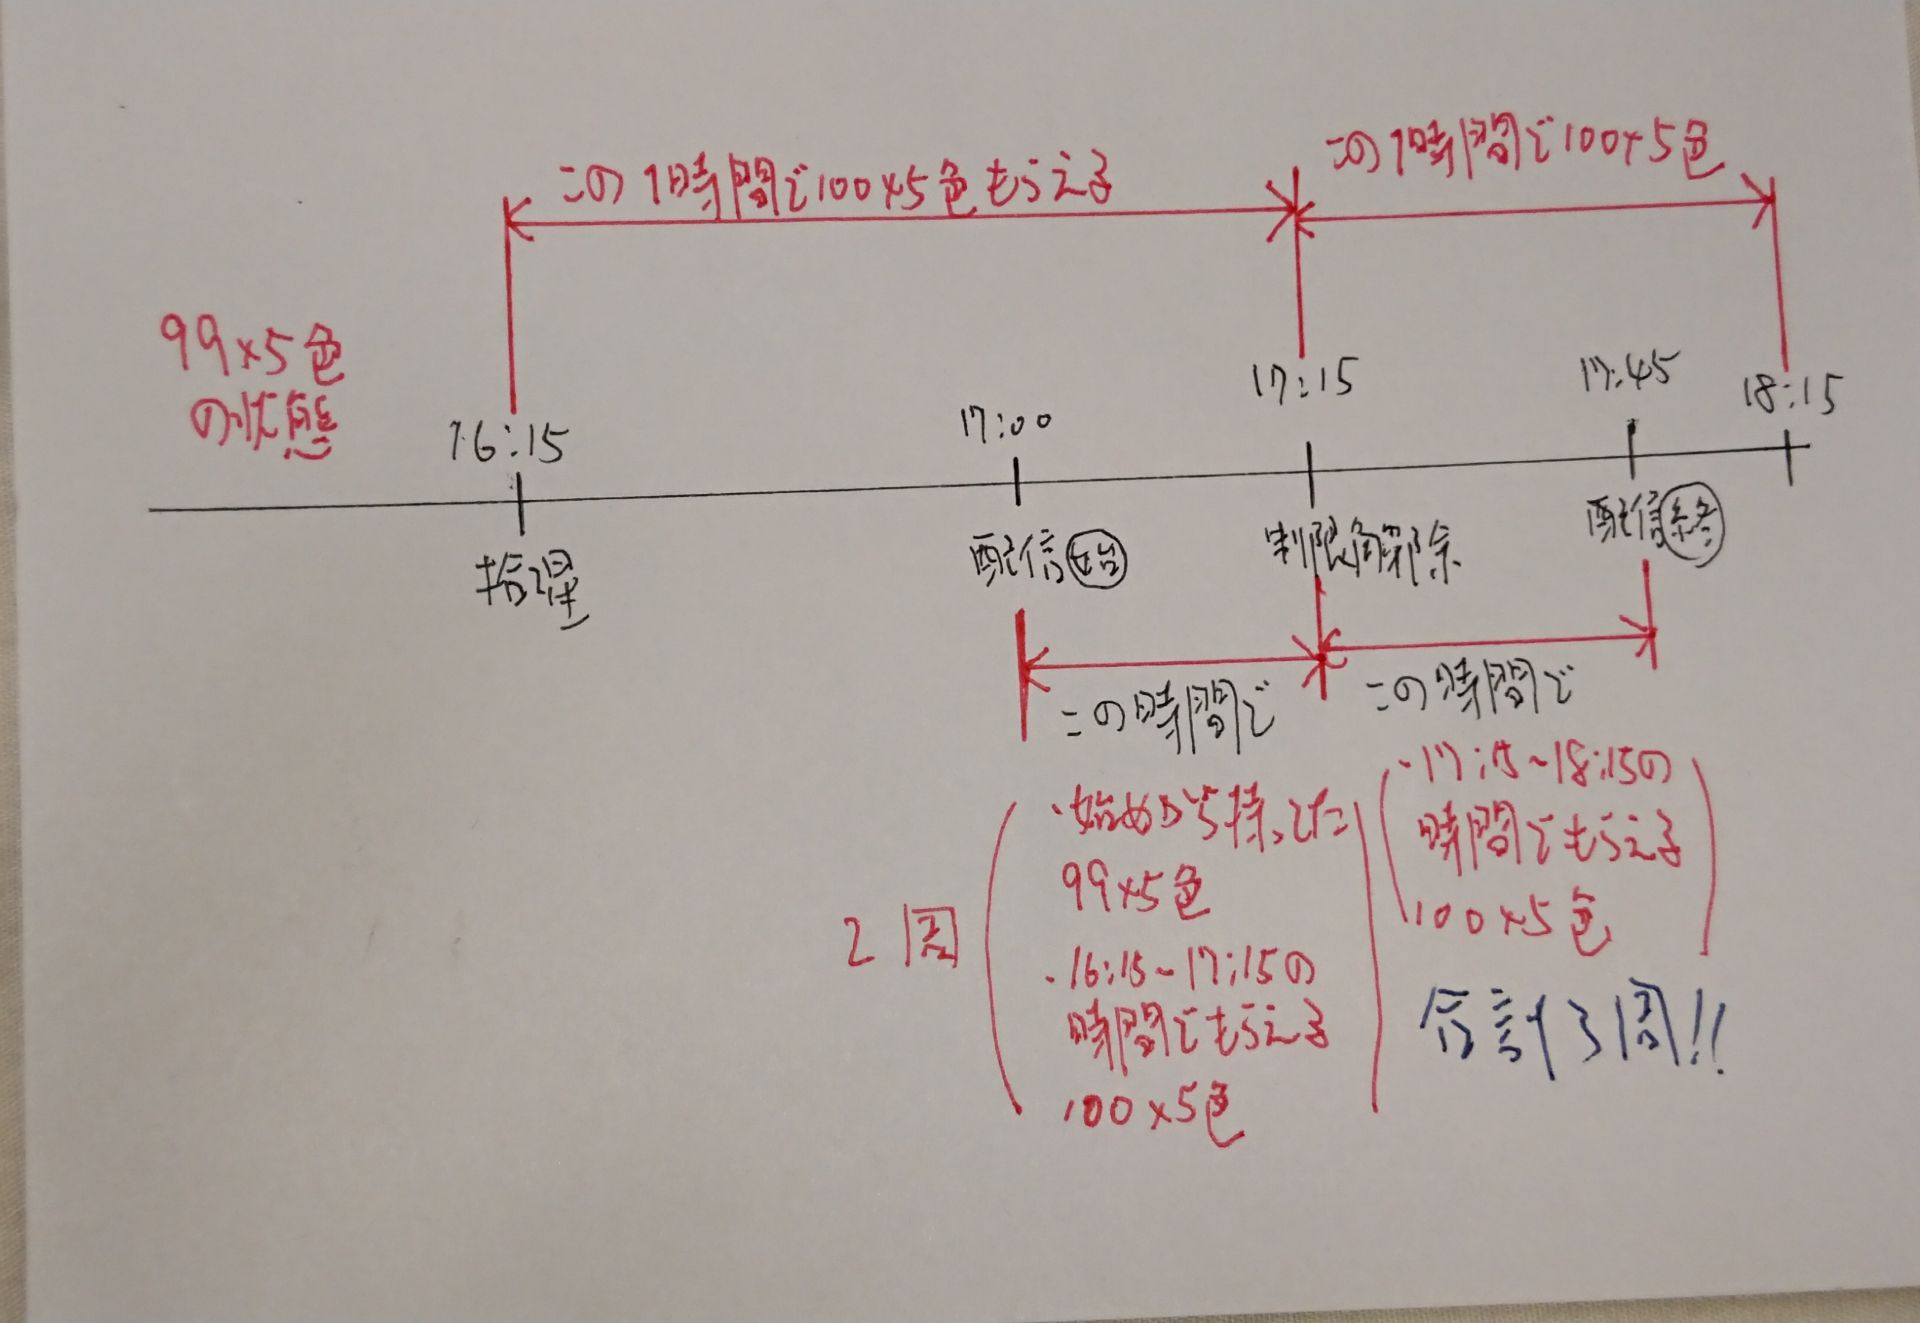 この1時間で100×5色もらえる
この1時間で100×5色
99×5色
の状態
16:15
17:00
17:15
17:45
18:15
捨星
配信始
制限解除
配信終
この時間で
この時間で
2周
・始めから持ってた
99×5色
・16:15~17:15の
時間でもらえる
100×5色
・17:15~18:15の
時間でもらえる
100×5色
合計3周!!